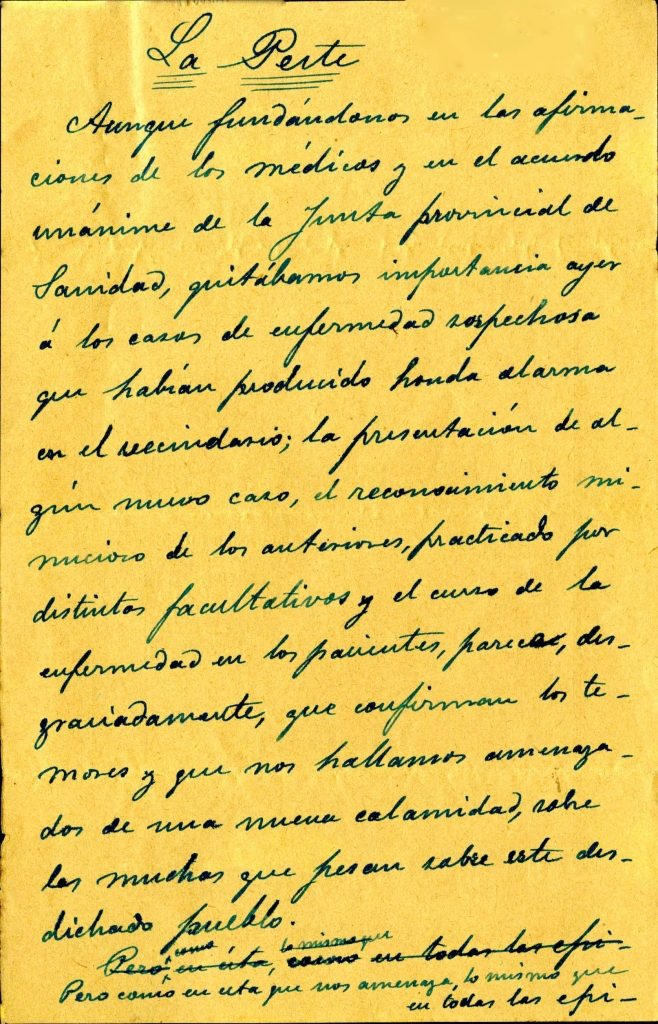 La Peste
Aunque fundándonos en las afirma-
ciones de los médicos y en el acuerdo
unánime de la Junta provincial de
Sanidad, quitábamos importancia ayer
á los casos de enfermedad sospechosa
que habían producido honda alarma
en el vecindario; la presentación de al-
gún nuevo caso, el reconocimiento mi-
nucioso de los anteriores, practicado por
distintos facultativos y el curso de la
enfermedad en los pacientes, parece, des-
graciadamente, que confirman los te-
mores y que nos hallamos amenaza-
dos de una nueva calamidad, sobre
las muchas que pesan sobre este des-
dichado pueblo.
como lo mismo que
Pero en ésta, como en todas las epi-
Pero como en esta que nos amenaza, lo mismo que
en todas las epi-